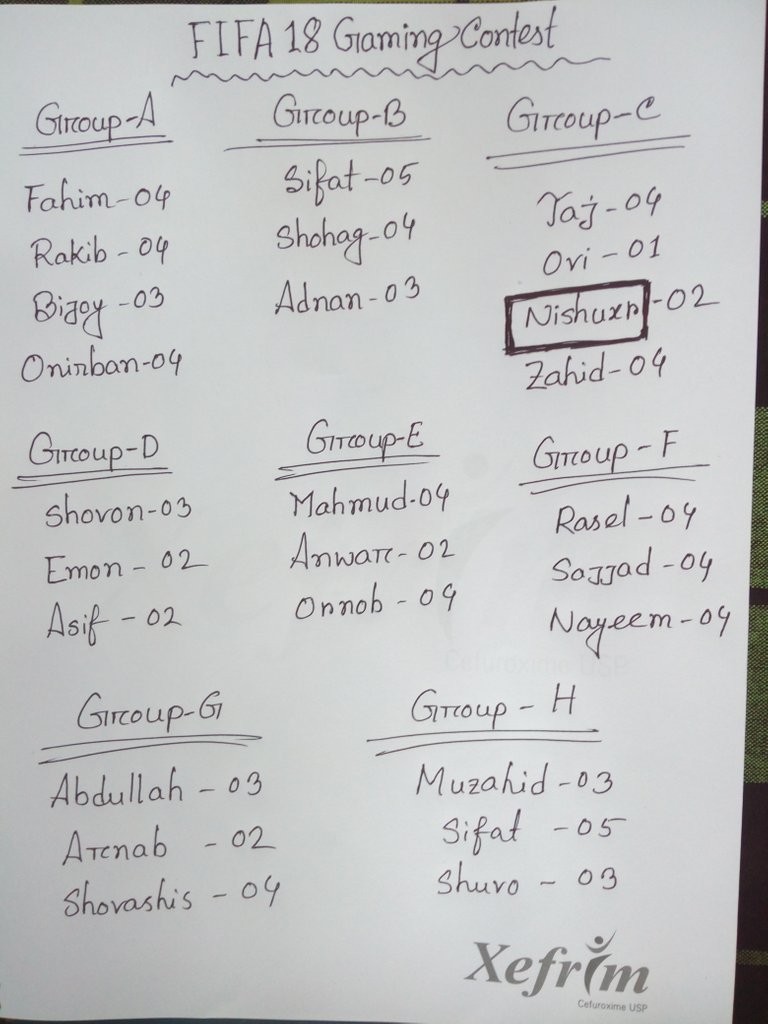 FIFA 18 Gaming Contest
Group-A
Fahim-04
Rakib-04
Bijoy-03
Onirban-04
Group-B
Sifat-05
Shohag-04
Adnan-03
Group-C
Taj-04
Ovi-01
Nishuxn-02
Zahid-04
Group-D
Shovon-03
Emon-02
Asif-02
Group-E
Mahmud-04
Anwar-02
Onnob-04
Group-F
Rasel-04
Sajjad-04
Nayeem-04
Group-G
Abdullah-03
Arnab-02
Shovashis-04
Group-H
Muzahid-03
Sifat-05
Shuvo-03
Xefrim
Cefuroxime USP